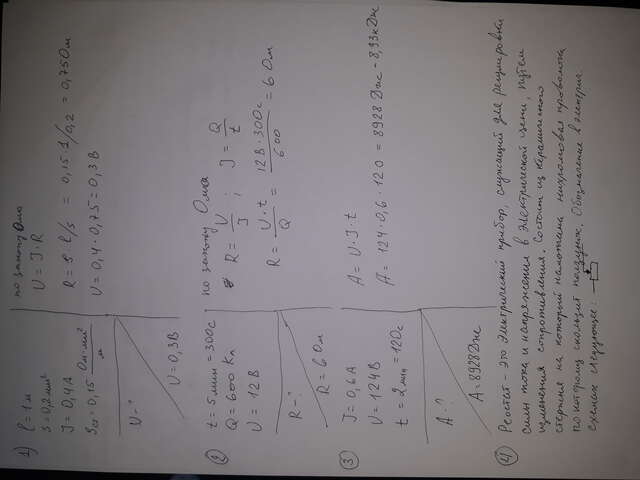 1) l = 1 м
S = 0,2 мм²
J = 0,4 А
ρст = 0,15 Ом·мм²/м
U - ?
U = 0,3 В
по закону Ома
U = J · R
R = ρ l/s = 0,15·1/0,2 = 0,75 Ом
U = 0,4 · 0,75 = 0,3 В
2) t = 5 мин = 300 с
Q = 600 Кл
U = 12 В
R - ?
R = 6 Ом
по закону Ома
R = U/J ; J = Q/t
R = U·t/Q = 12 В · 300 с/600 = 6 Ом
3) J = 0,6 А
U = 124 В
t = 2 мин = 120 с
A - ?
A = 8928 Дж
A = U · J · t
A = 124 · 0,6 · 120 = 8928 Дж - 8,93 кДж
4) Реостат - это электрический прибор, служащий для регулировки
силы тока и напряжения в электрической цепи, путём
изменения сопротивления. Состоит из керамического
стержня на который намотана нихромовая проволока
по которому скользит ползунок. Обозначение в электрич
схемах следующее: